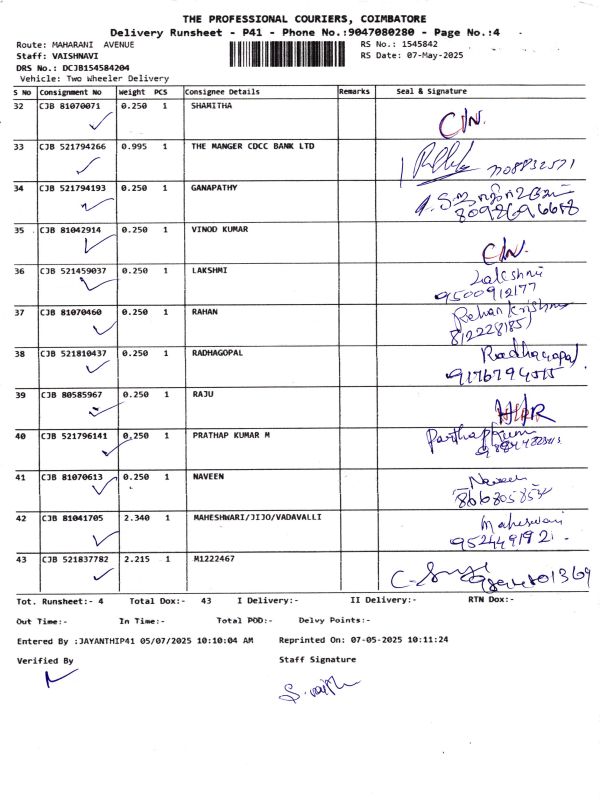 THE PROFESSIONAL COURIERS, COIMBATORE
Delivery Runsheet - P41 - Phone No.:9047080280 - Page No.:4
Route: MAHARANI AVENUE RS No.: 1545842
Staff: VAISHNAVI RS Date: 07-May-2025
DRS No.: DCJB154584204
Vehicle: Two Wheeler Delivery
S No Consignment No Weight PCS Consignee Details Remarks Seal & Signature
32 CJB 81070071 0.250 1 SHAMITHA
33 CJB 521794266 0.995 1 THE MANGER CDCC BANK LTD
34 CJB 521794193 0.250 1 GANAPATHY
35 CJB 81042914 0.250 1 VINOD KUMAR
36 CJB 521459037 0.250 1 LAKSHMI Lakshmi
9500912177
37 CJB 81070460 1 RAHAN Rehan krishna
38 CJB 521810437 0.250 1 RADHAGOPAL Radhagopal
39 CJB 80585967 0.250 1 RAJU
40 CJB 521796141 0.250 1 PRATHAP KUMAR M
41 CJB 81070613 0.250 1 NAVEEN Naveen
42 CJB 81041705 2.340 1 MAHESHWARI/JIJO/VADAVALLI Maheswari
43 CJB 521837782 2.215 1 M1222467
Tot. Runsheet:- 4 Total Dox:- 43 I Delivery:- II Delivery:- RTN Dox:-
Out Time:- In Time:- Total POD:- Delvy Points:-
Entered By :JAYANTHIP41 05/07/2025 10:10:04 AM Reprinted On: 07-05-2025 10:11:24
Verified By Staff Signature